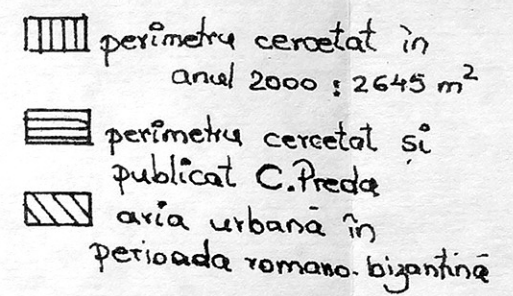 perimetru cercetat în
anul 2000 : 2645 m²
perimetru cercetat și
publicat C.Preda
aria urbană în
perioada romano-bizantină